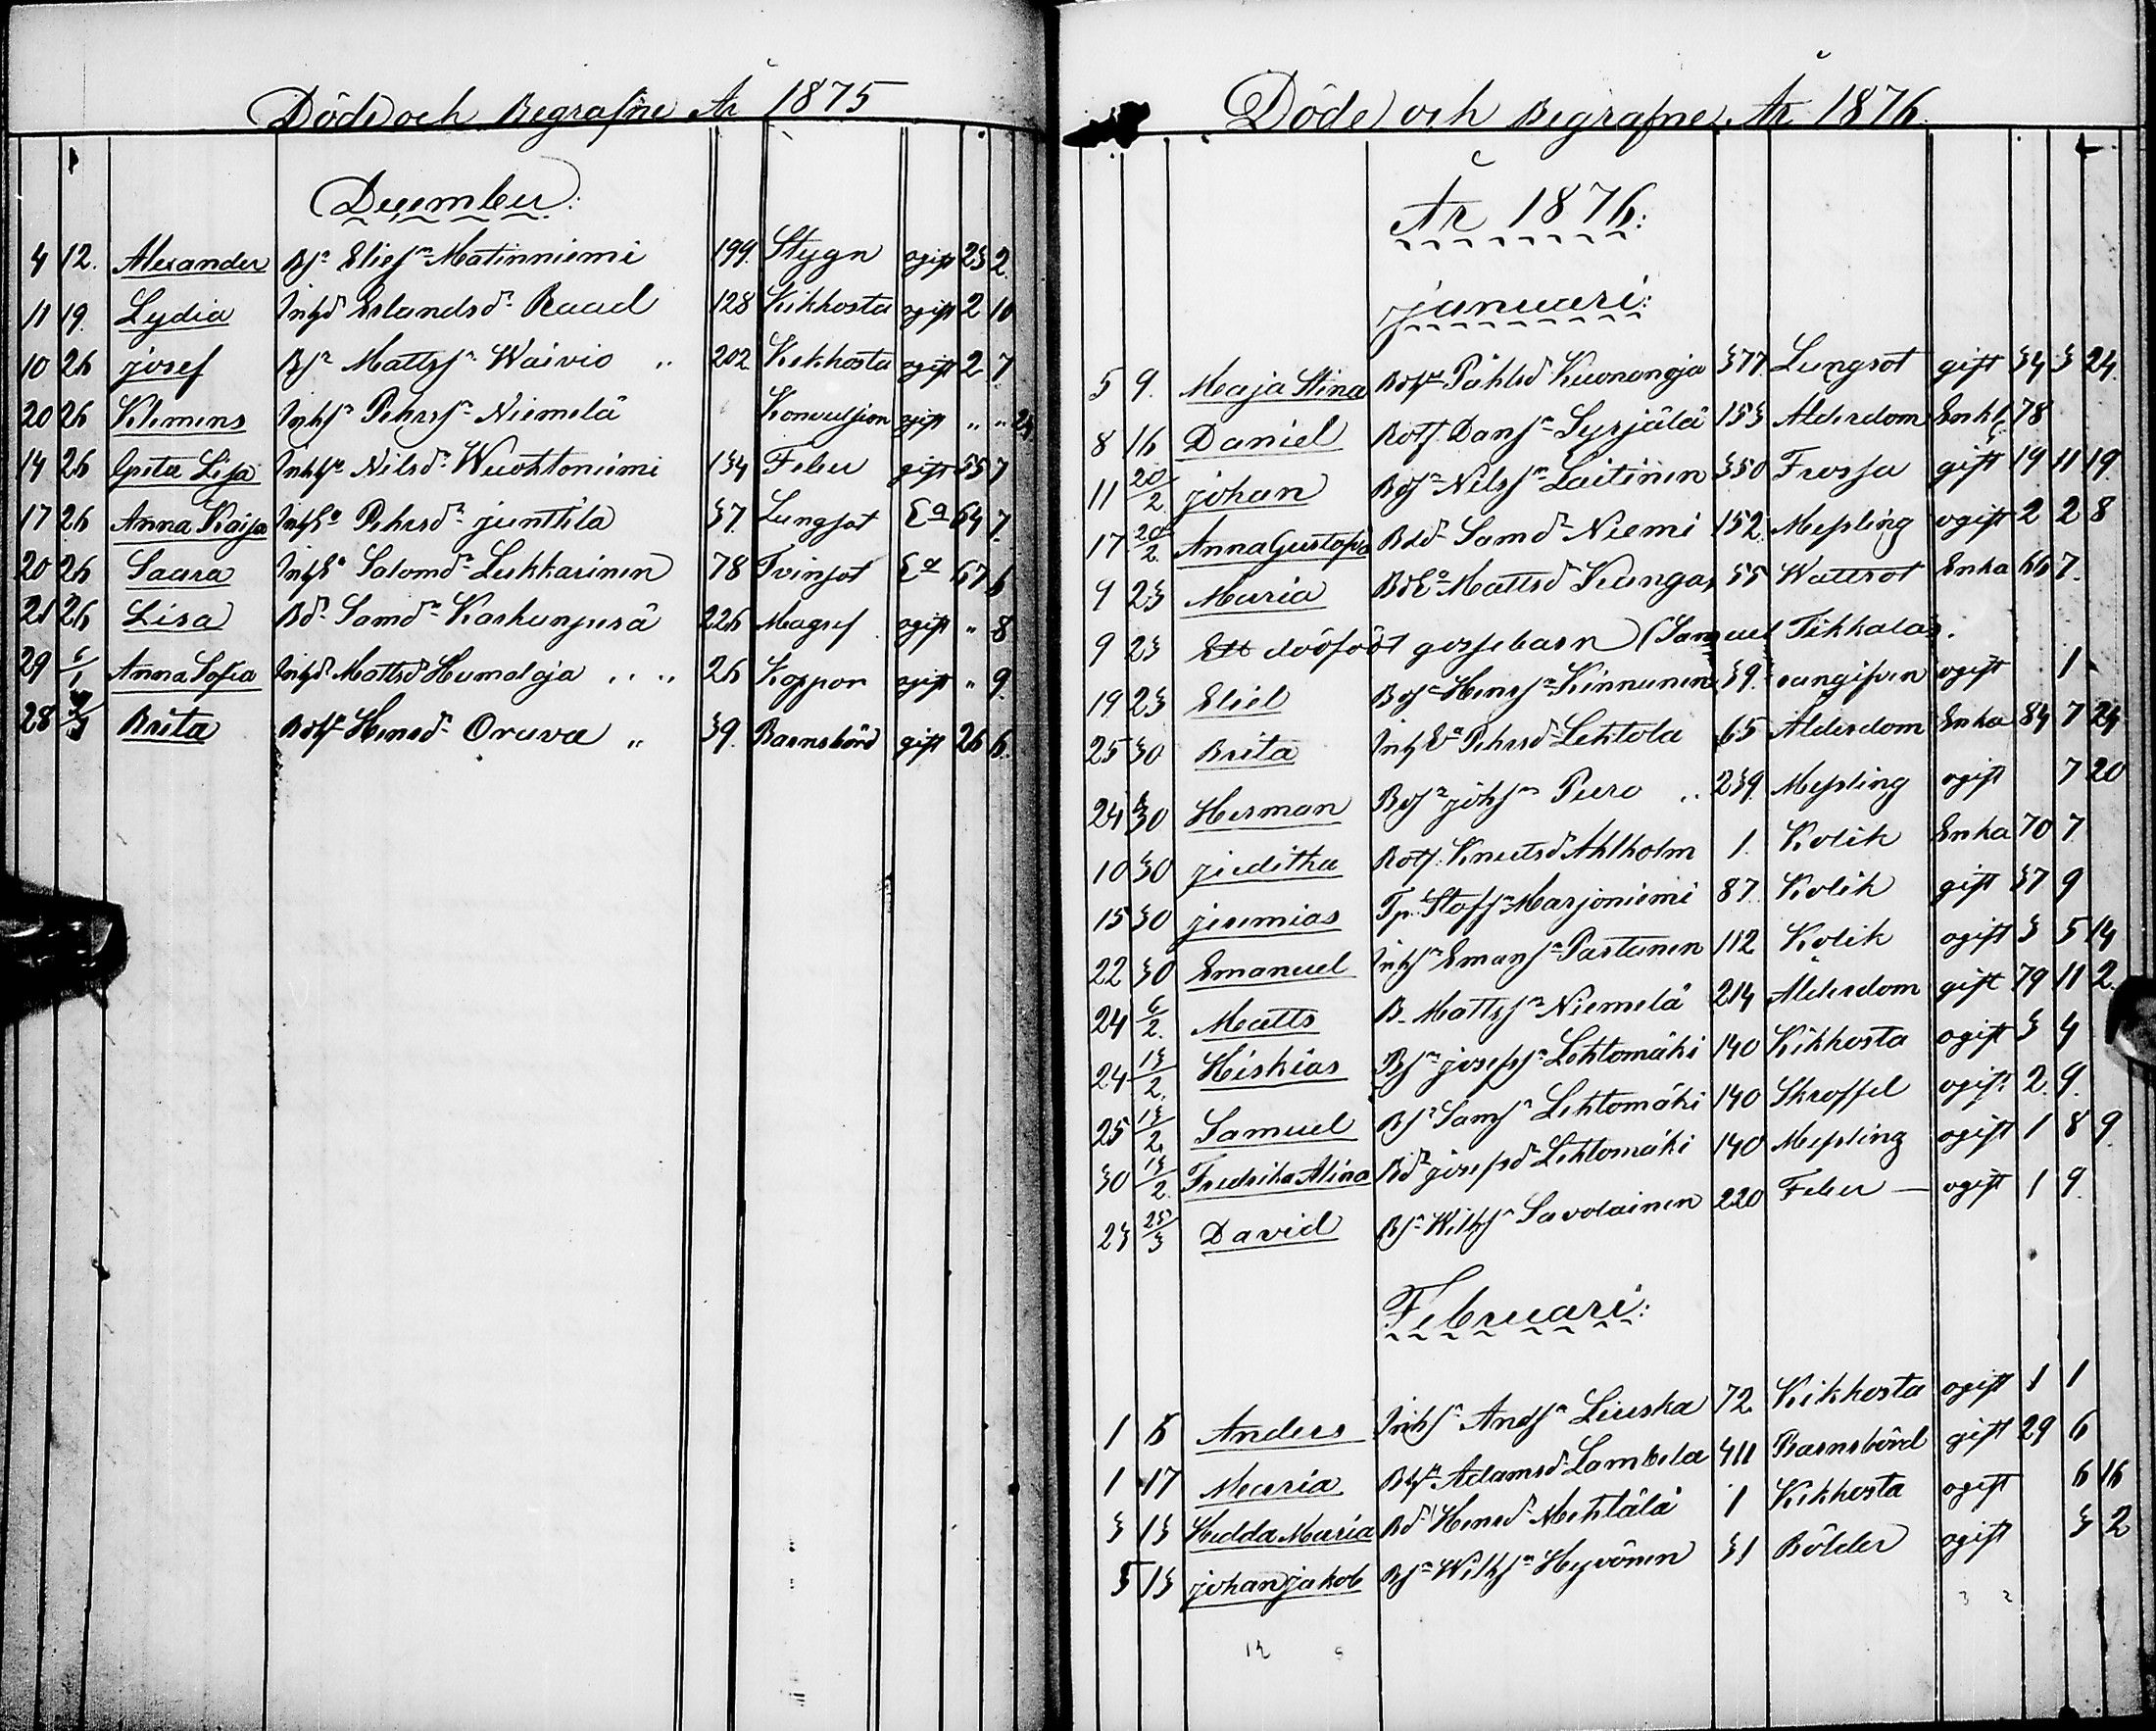 Döde och Begrafne År 1875
December:
4 12. Alexander Bs. Eliess. Matinniemi 199. Stygn ogift 23 2.
11 19. Lydia Inhsd Erlandsd. Raud 128 Kikhosta ogift 2 10
10 26 josef Bs. Mattss. Waivio „ 202 Kikhosta ogift 2 7.
20 26 Klemens Inhs. Pehrss. Niemelä Konvulsion ogift „ „ 23
14 26 Greta Lisa Inhh. Nilsd. Wuohtoniemi 134 Feber gift 55 7
17 26 Anna Kaisa InhEa Pehrsd. junttila 37. Lungsot Ea 64 7.
20 26 Saara InhEa Salomd. Leskkarinen 78 Tvinsot Ea 67 6
21 26 Lisa Bd. Samd. Karhunpesä 226 Magref ogift „ 8
29 6/1 Anna Sofia Inhd Mattsd Humaloja „ „ 26 Koppor ogift „ 9.
28 Brita Hinrsd. Orava „ 39. Barnsbörd gift 26 6.
Döde och Begrafne År 1876.
År 1876:
januari:
5 9. Maja Stina Påhlsd Kuonanoja 377. Lungsot gift 34 3 24.
8 16 Daniel Rots. Dans. Syrjälä 153 Ålderdom Enkl. 78
11 20/2 johan Bds. Nilss. Laitinen 350 Frossa gift 19 11 19.
17 20/2. Anna Gustafva Bdd. Samd. Niemi 152. Messling ogift 2 2 8
9 23 Maria BdEa Mattsd Kangas 55 Wattsot Enka 66 7.
9 23 Ett dödfödt gossebarn (Samuel Tikkalas.
19 23 Eliel Bds. Hinrs. Kinnunen 39. oangifven ogift 1
25 30 Brita InhEa Pehrsd Lehtola 65 Ålderdom Enka 84 7 24
24 30 Herman Bds. johs. Puro „ 239. Messling ogift 7 20
10 30 juditha Rots. Knutsd Ahlholm 1. Kolik Enka 70 7.
15 30 jeremias Tp. Stafs. Marjoniemi 87. Kolik gift 37 9
22 30 Emanuel Inhs. Emans. Partanen 112 Kolik ogift 3 5 14
24 6/2. Matts B. Mattss. Niemelä 214 Ålderdom gift 79 11 2.
24 13/2. Hiskias Bs. josefss. Lehtomäki 140 Kikhosta ogift 3 4
25 13/2. Samuel Bs. Sams. Lehtomäki 140 Skroffel ogift 2. 9.
30 13/2. Fredrika Alina Bd. josefsd. Lehtomäki 140 Messling ogift 1 8 9.
23 25/3 David Bs. Wilhs. Savolainen 220 Feber — ogift 1 9.
Februari:
1 6 Anders Inhs. Ands. Liuska 72. Kikhosta ogift 1 1
1 17 Maria Adamsd. Lambela 411 Barnsbörd gift 29 6
3 13 Hedda Maria Bd. Hinrsd. Mehtälä 1 Kikhosta ogift 6 16
5 13 johan jakob Bs. Wilhs. Hyvönen 31 Bölder ogift 3 2